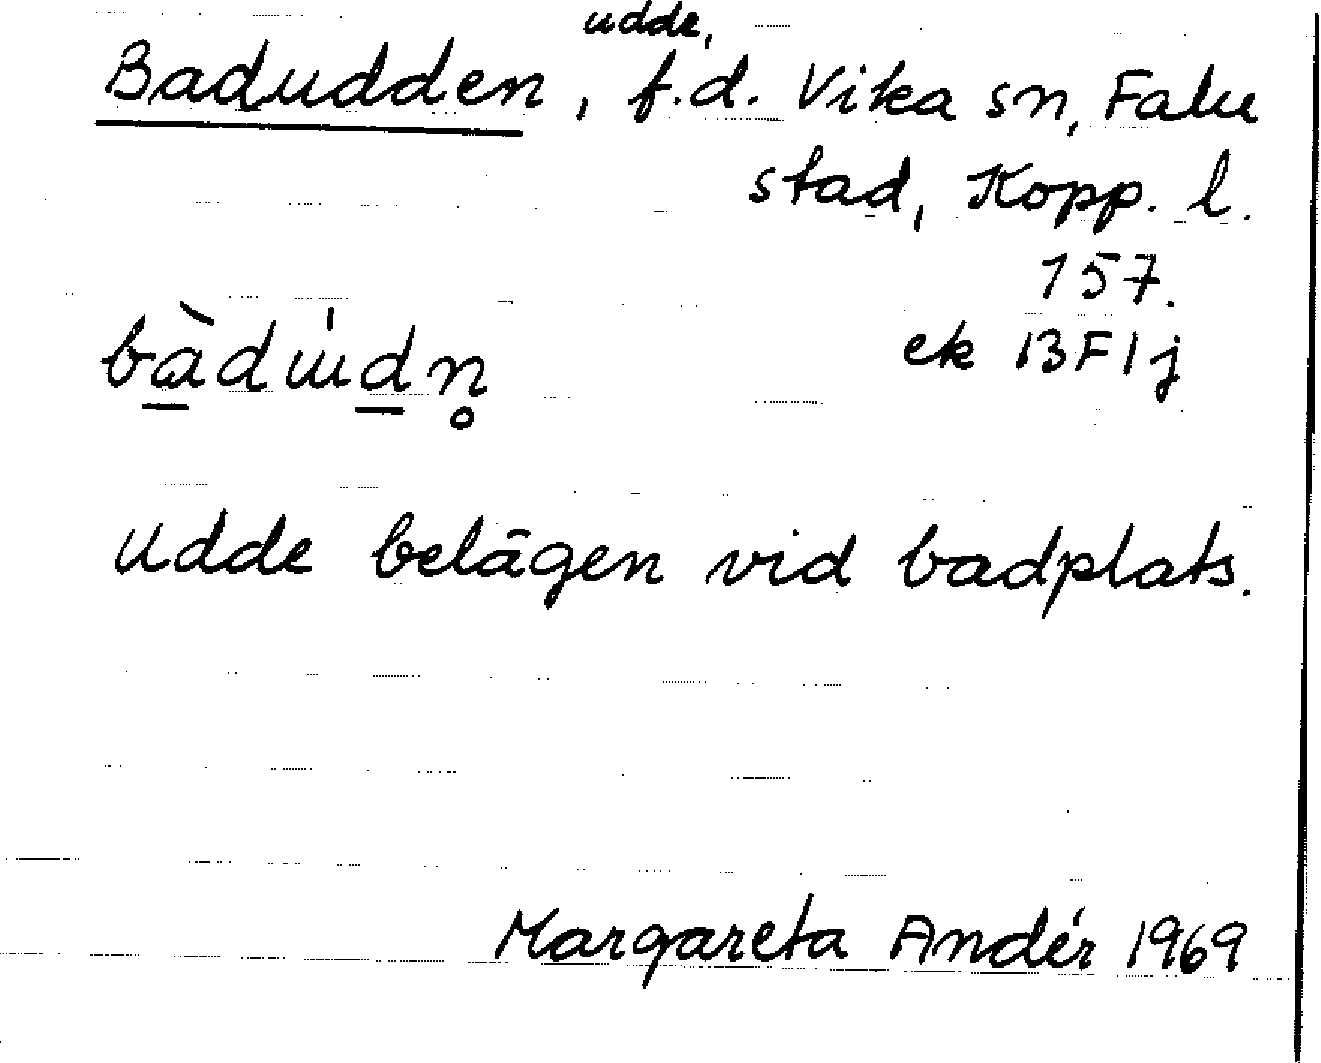 Badudden, udde, f.d. Vika sn, Falu
stad, Kopp. l.
157.
bàdɯ́dn̥ ek 13F1j
Udde belägen vid badplats.
Margareta Andér 1969